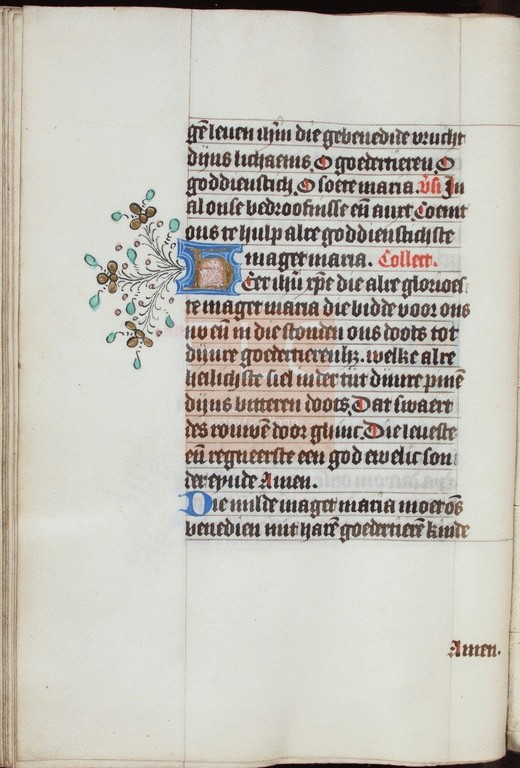 gē leuen ihm̄ die gebenedide vrucht
dijns lichaems. O goedertieren. O
goddienstich. O soete maria. Vs̄. In
al onse bedroofnisse eñ anxt Coemt
ons te hulp alre goddienstichste
maget maria. Collect.
HEre ihū xp̄e die alre glorioes
te maget maria die bidde voor ons
nv eñ in die stonden ons doots tot
dijnre goedertierenh3. welke alre
heilichste siel in der tijt dijnre pinē
dijns bitteren doots. Dat swaert
des rouwē door ghinc. Die leueste
eñ regneerste een god ewelic son
der eynde Amen.
Die milde maget maria moet ōs
benedien mit harē goedertierē kinde
Amen.